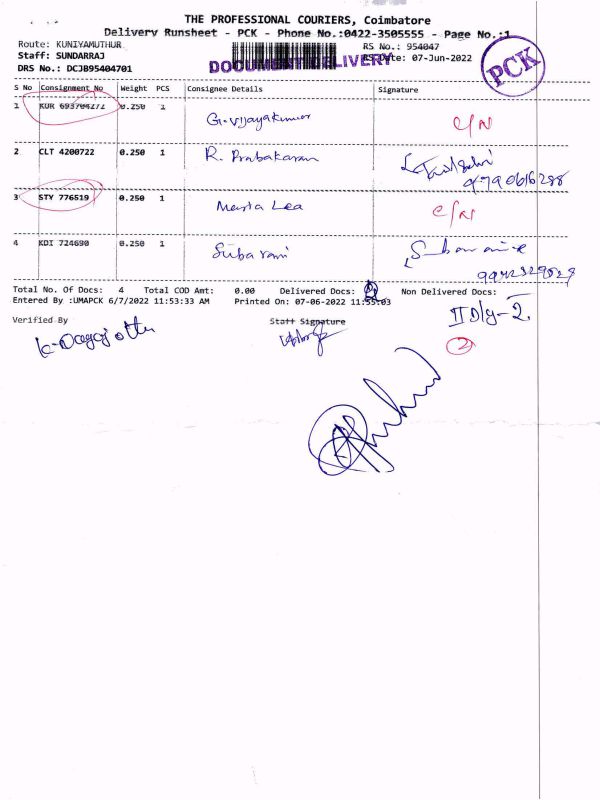 THE PROFESSIONAL COURIERS, Coimbatore
Delivery Runsheet - PCK - Phone No.:0422-3505555 - Page No.:1
Route: KUNIYAMUTHUR RS No.: 954047
Staff: SUNDARRAJ DOCUMENT DELIVERY RS Date: 07-Jun-2022 PCK
DRS No.: DCJB95404701
S No Consignment No Weight PCS Consignee Details Signature
1 KUR 693704272 0.250 1 G. Vijayakumar C/N
2 CLT 4200722 0.250 1 R. Prabakaran
9790616288
3 STY 776519 0.250 1 Maria Lea C/N
4 KDI 724690 0.250 1 Suba rani
Total No. Of Docs: 4 Total COD Amt: 0.00 Delivered Docs: 2 Non Delivered Docs:
Entered By :UMAPCK 6/7/2022 11:53:33 AM Printed On: 07-06-2022 11:55:03
II Dly-2
Verified By Staff Signature
2